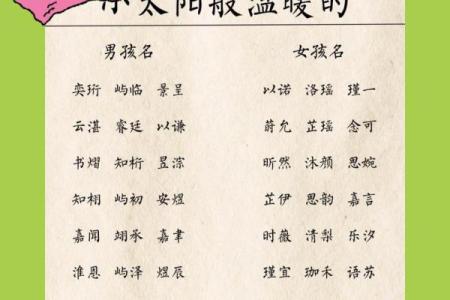 小太阳般温暖的
男孩名 女孩名
奕珩 屿临 景呈 以诺 洛瑶 瑾一
云湛 睿廷 以谦 蔚允 芷瑶 念可
书熠 知桁 昱淙 昕然 沐颜 思婉
知栩 屿初 安煜 芷伊 思韵 嘉言
嘉闻 翊承 嘉聿 时薇 清梨 乐汐
淮恩 屿泽 煜辰 瑾宜 珈禾 语苏